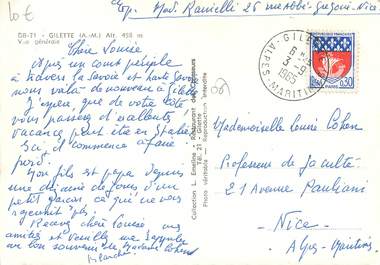 Exp. Mad. Ranielli 26 rue
DB-71 - GILETTE (A.-M.) Alt. 458 m
Vue générale
Chère Louise
Après un court périple
à travers la Savoie et haute Savoie
nous voilà de nouveau à Gilette
J'espère que de votre côté
vous passez d'excellentes
vacances peut être en Italie
Ici il commence à faire
froid.
Mon fils est papa depuis
une dizaine de jours d'un
petit garçon, ce qui ne vous
rajeunit pas.
Recevez chère Louise nos
amitiés et veuillez me rappeler
au bon souvenir de Madame Cohen
Blanche
Collection L. Emeline - Restaurant des Chasseurs
Tél. 21 - Gilette
Photo véritable - Reproduction interdite
GILETTE
6
3-9
1965
ALPES MARITIMES
0,30
PARIS
Mademoiselle Louise Cohen
Professeur de faculté
21 Avenue Pauliani
Nice
Alpes-Maritimes